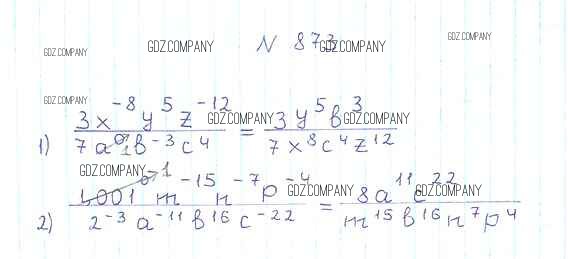 GDZ.COMPANY GDZ.COMPANY N 873 GDZ.COMPANY GDZ.COMPANY
GDZ.COMPANY
1) 3x⁻⁸y⁵z⁻¹² / 7a⁰b⁻³c⁴ = 3y⁵b³ / 7x⁸c⁴z¹² GDZ.COMPANY GDZ.COMPANY
1
GDZ.COMPANY
2) 1,001⁰ m⁻¹⁵ n⁻⁷ p⁻⁴ / 2⁻³a⁻¹¹b¹⁶c⁻²² = 8a¹¹c²² / m¹⁵b¹⁶n⁷p⁴ GDZ.COMPANY GDZ.COMPANY
1